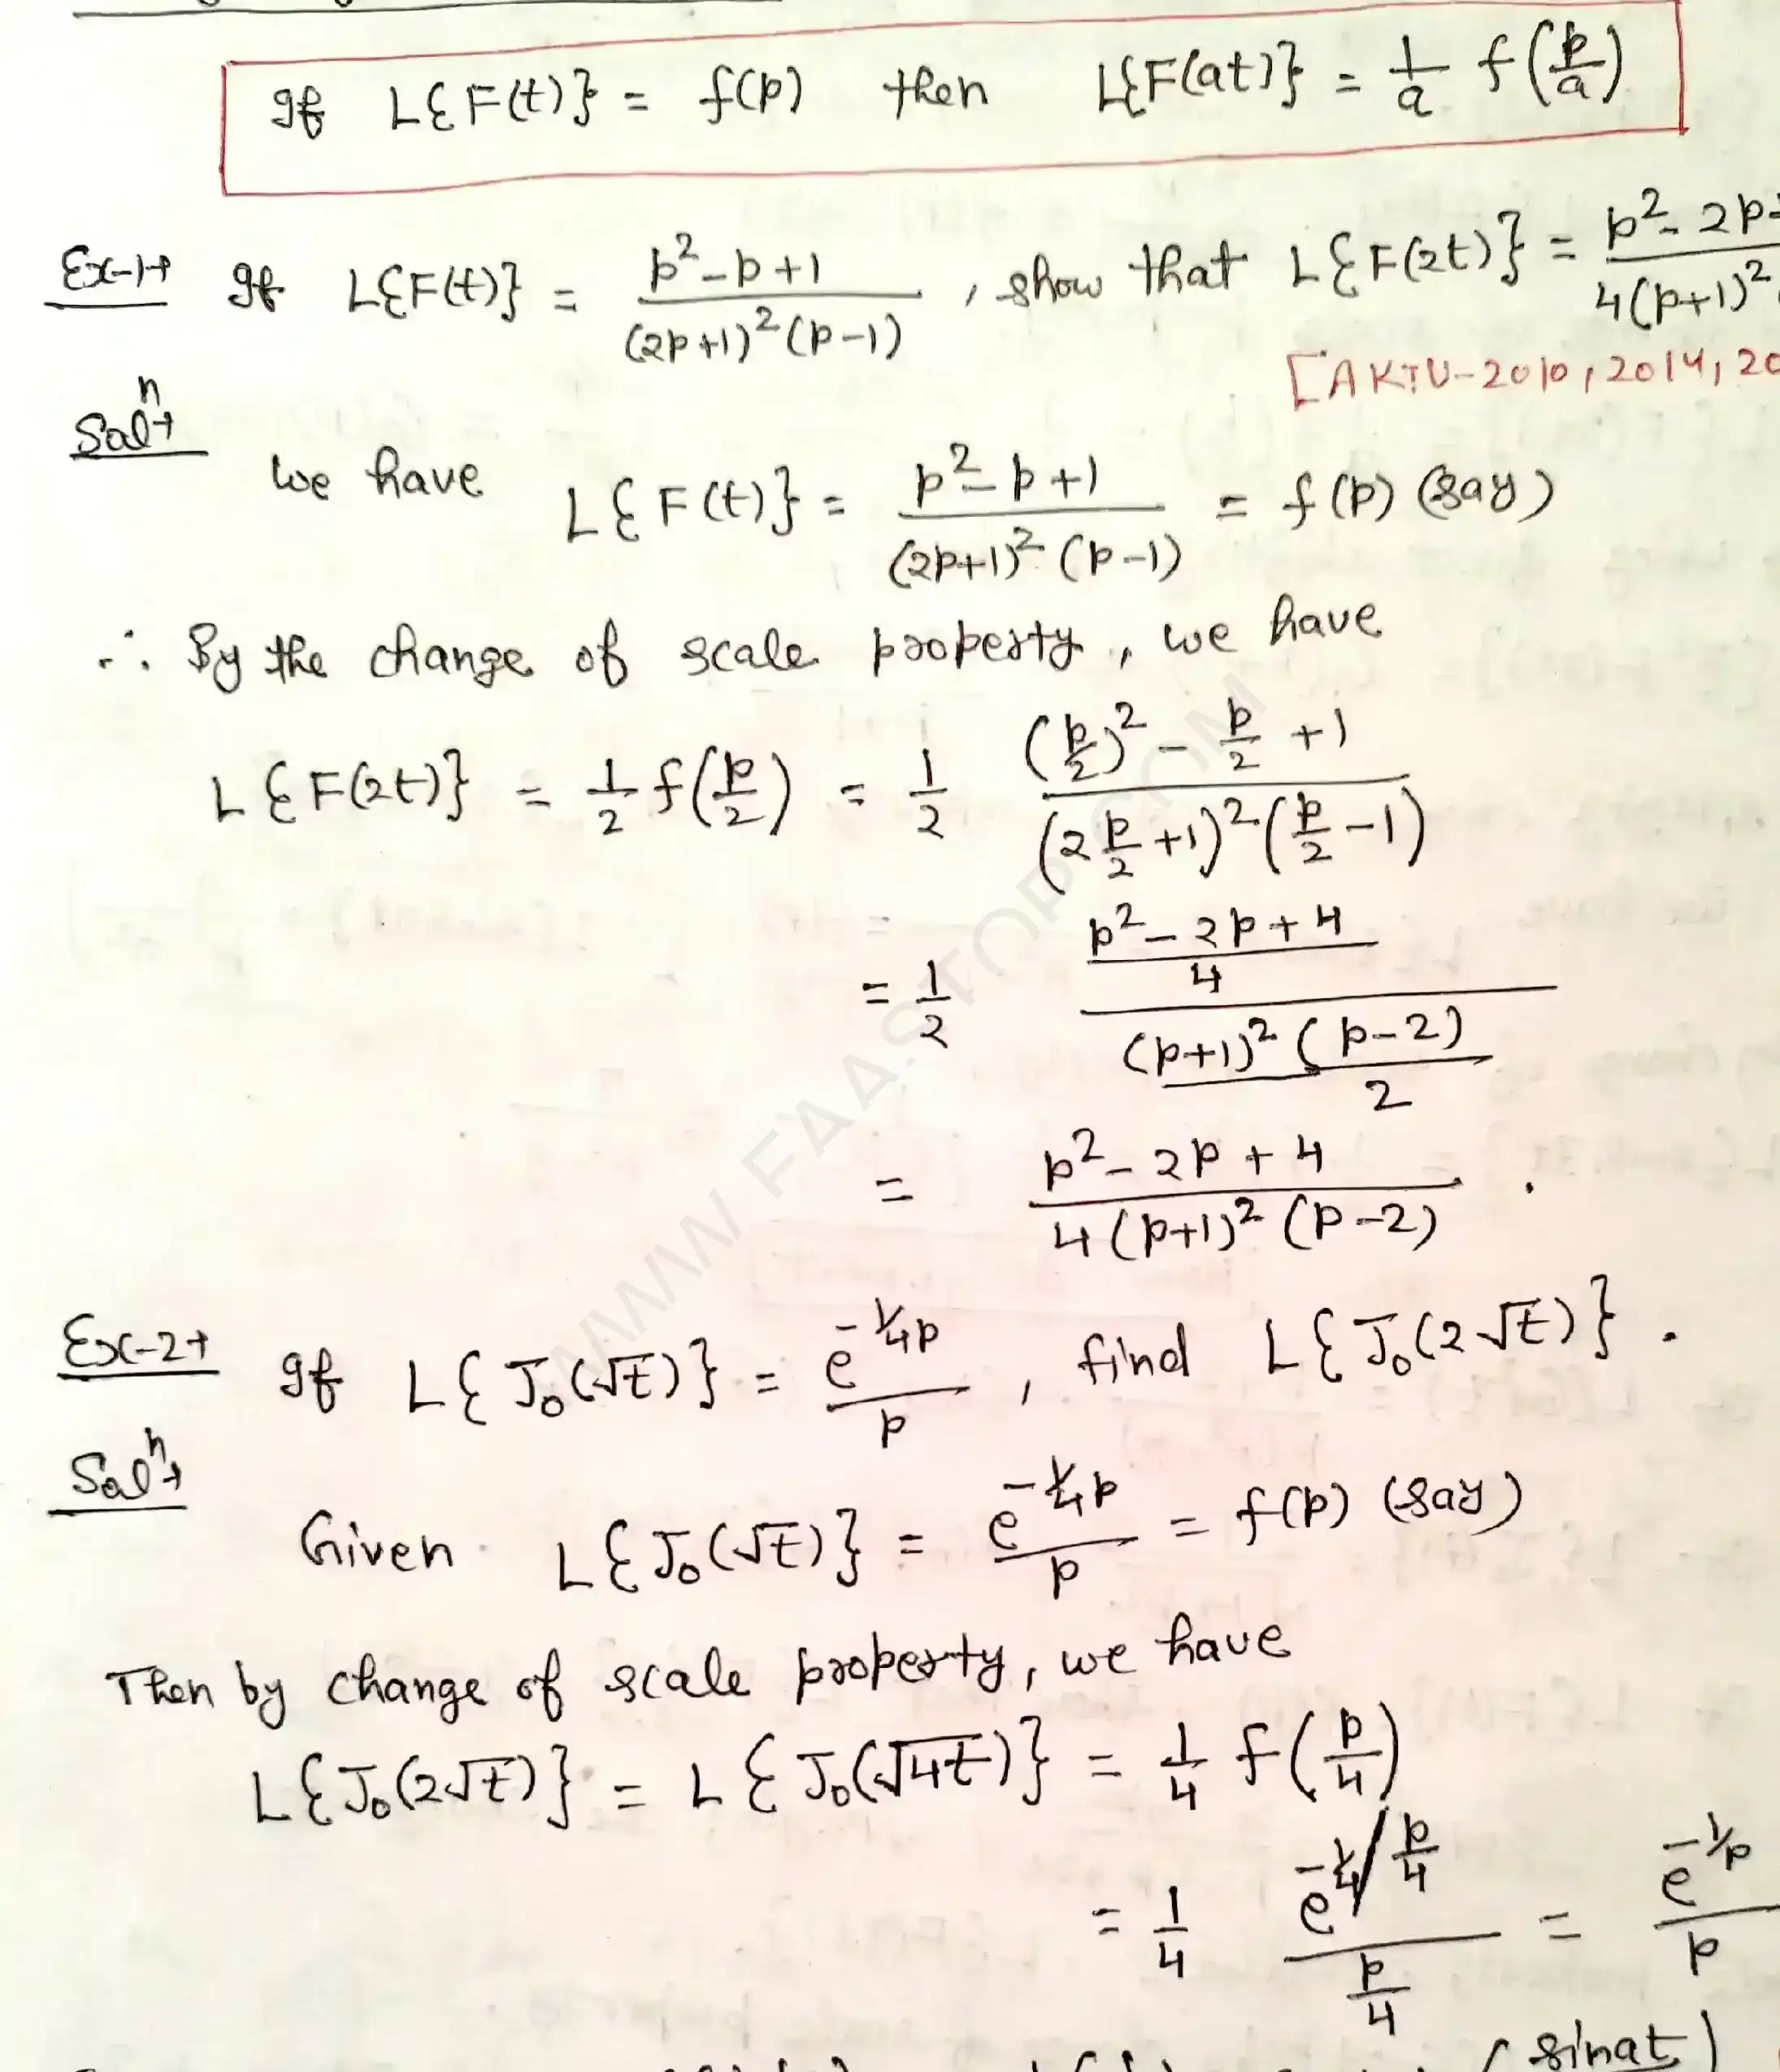 If L{F(t)} = f(p) then L{F(at)} = 1/a f(p/a)
Ex-1→ If L{F(t)} = (p²-p+1)/((2p+1)²(p-1)), show that L{F(2t)} = (p²-2p+)/(4(p+1)²
[AKTU-2010, 2014, 20
Solⁿ→
We have L{F(t)} = (p²-p+1)/((2p+1)²(p-1)) = f(p) (say)
∴ By the change of scale property, we have
L{F(2t)} = 1/2 f(p/2) = 1/2 ((p/2)² - p/2 + 1)/((2 p/2 +1)²(p/2 -1))
= 1/2 ((p²-2p+4)/4)/((p+1)²(p-2)/2)
= (p²-2p+4)/(4(p+1)²(p-2)).
Ex-2→ If L{J₀(√t)} = e^(-1/4p)/p, find L{J₀(2√t)}.
Solⁿ→
Given L{J₀(√t)} = e^(-1/4p)/p = f(p) (say)
Then by change of scale property, we have
L{J₀(2√t)} = L{J₀(√4t)} = 1/4 f(p/4)
= 1/4 e^(-1/4/(p/4))/(p/4) = e^(-1/p)/p
(sinat)
WWW.FAASTOP.COM